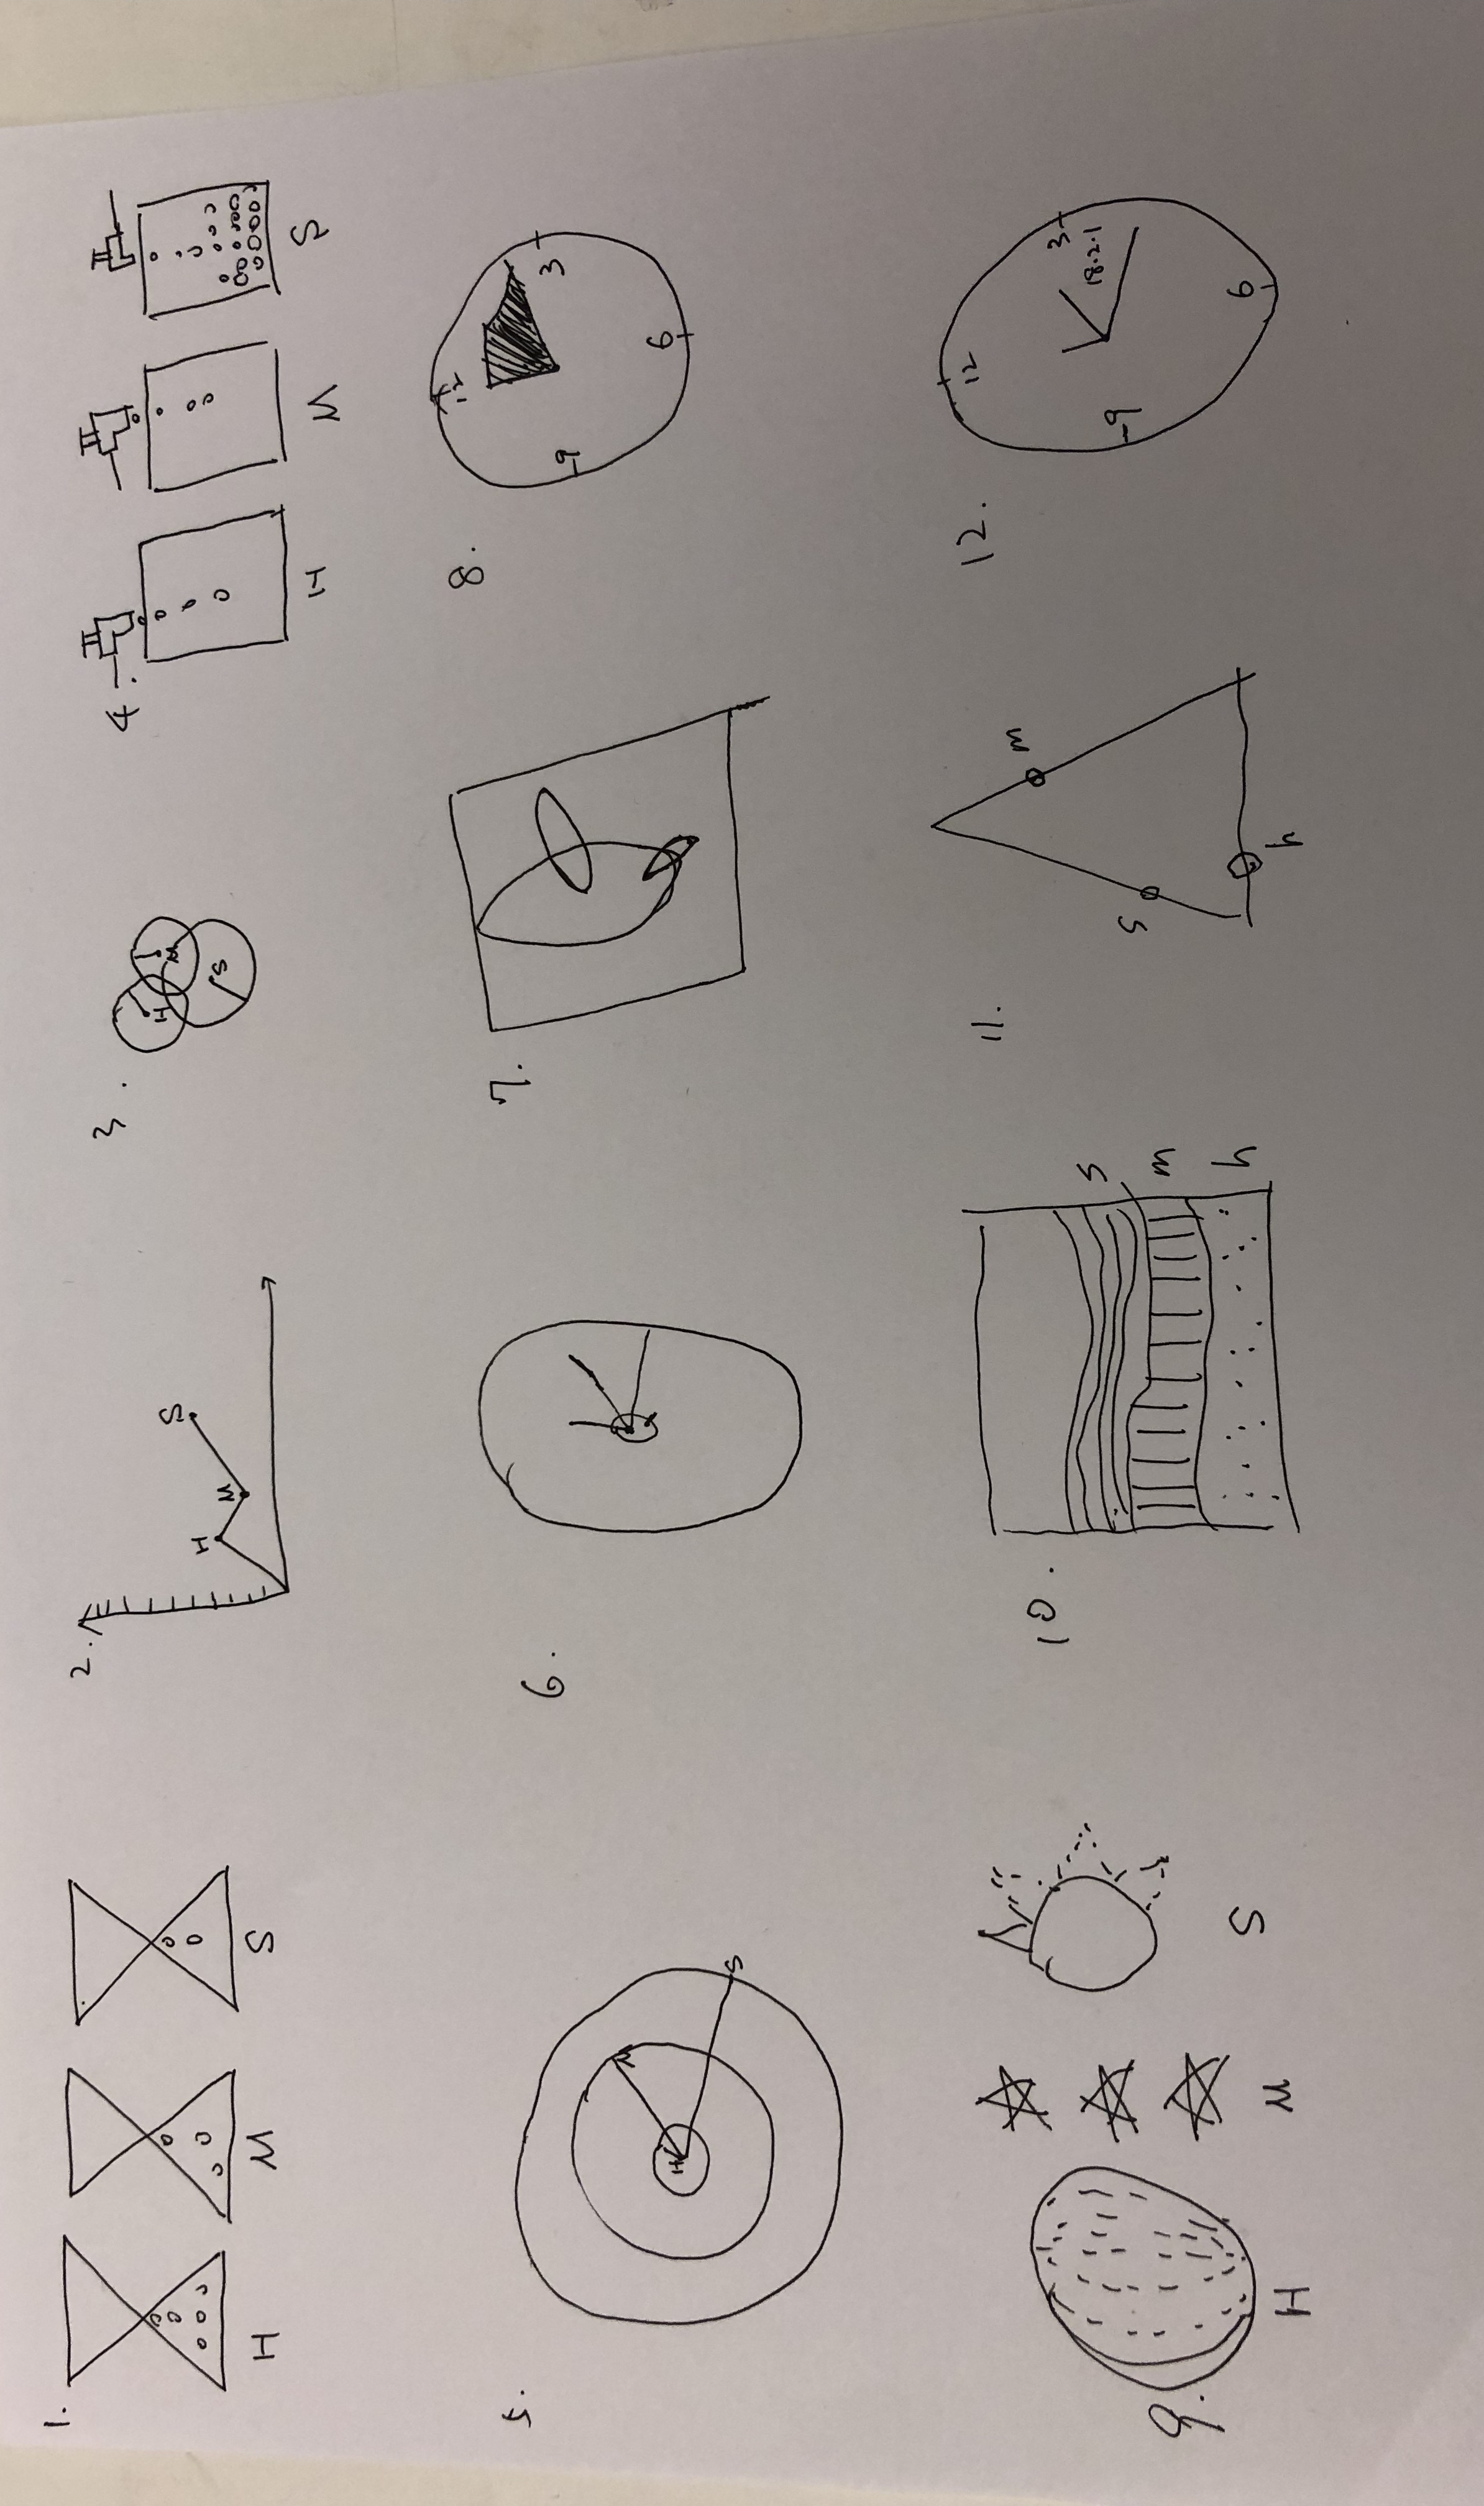 1.
H M S
2.
H M S
3.
H M S
4.
H M S
5.
H M S
6.
7.
8.
12 3 6 9
9.
H M S
10.
s
m
h
11.
s m
h
12.
12 3 6 9
18.2.1